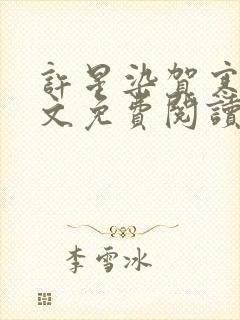 許星染賀寒
文免費閱讀
李雪冰